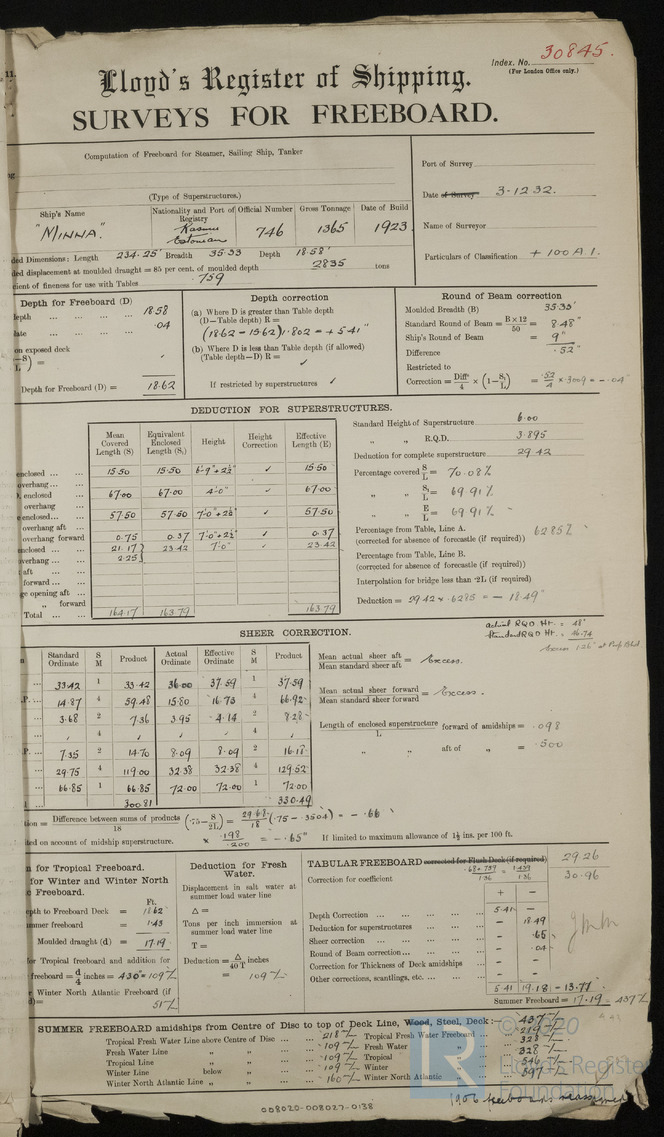 11.
Index. No. 30845.
(For London Office only.)
Lloyd's Register of Shipping.
SURVEYS FOR FREEBOARD.
Computation of Freeboard for Steamer, Sailing Ship, Tanker
Port of Survey
(Type of Superstructures.)
Date of Survey 3-12 32.
Ship's Name
Nationality and Port of Registry
Official Number
Gross Tonnage
Date of Build
"MINNA."
Estonean
746
1365
1923
Name of Surveyor
Particulars of Classification + 100 A.1.
ded Dimensions: Length 234.25' Breadth 35.33 Depth 18.58'
ded displacement at moulded draught = 85 per cent. of moulded depth 2835 tons
cient of fineness for use with Tables .759
Depth for Freeboard (D)
epth 18.58
late .04
on exposed deck
Depth for Freeboard (D) = 18.62
Depth correction
(a) Where D is greater than Table depth
(D—Table depth) R =
(18.62 - 15.62) 1.802 = + 5.41"
(b) Where D is less than Table depth (if allowed)
(Table depth—D) R =
If restricted by superstructures ✓
Round of Beam correction
Moulded Breadth (B) 35.33'
Standard Round of Beam = B × 12 / 50 = 8.48"
Ship's Round of Beam = 9"
Difference .52"
Restricted to
Correction = Diff / 4 × (1 − S₁/L) = .52/4 × .3009 = - .04"
DEDUCTION FOR SUPERSTRUCTURES.
Mean Covered Length (S)
Equivalent Enclosed Length (S₁)
Height
Height Correction
Effective Length (E)
enclosed 15.50 15.50 6'-9" + 2½" ✓ 15.50
overhang
enclosed 67.00 67.00 4'-0" ✓ 67.00
overhang
enclosed 57.50 57.50 7'-0" + 2½" ✓ 57.50
overhang aft
overhang forward 0.75 0.37 7'-0" + 2½" ✓ 0.37
nclosed 21.17 23.42 7'-0" ✓ 23.42
verhang 2.25
aft
forward
ge opening aft
" forward
Total 164.17 163.79 163.79
Standard Height of Superstructure 6.00
" " R.Q.D. 3.895
Deduction for complete superstructure 29.42
Percentage covered S/L = 70.08%
" " S₁/L = 69.91%
" " E/L = 69.91%
Percentage from Table, Line A. 62.85%
(corrected for absence of forecastle (if required))
Percentage from Table, Line B.
(corrected for absence of forecastle (if required))
Interpolation for bridge less than ·2L (if required)
Deduction = 29.42 × .6285 = - 18.49"
actual RQD Ht. = 48"
Standard RQD Ht. = 46.74
SHEER CORRECTION.
Standard Ordinate
S M
Product
Actual Ordinate
Effective Ordinate
S M
Product
33.42 1 33.42 36.00 37.59 1 37.59
14.87 4 59.48 15.80 16.73 4 66.92
3.68 2 7.36 3.95 4.14 2 8.28
4 4
7.35 2 14.70 8.09 8.09 2 16.18
29.75 4 119.00 32.38 32.38 4 129.52
66.85 1 66.85 72.00 72.00 1 72.00
300.81 330.49
Mean actual sheer aft / Mean standard sheer aft = Excess.
Mean actual sheer forward / Mean standard sheer forward = Excess.
Length of enclosed superstructure / L forward of amidships = .098
" " aft of " = .500
tion = Difference between sums of products / 18 (.75 − S/2L) = 29.68/18 (.75 - .3504) = - .66
ited on account of midship superstructure. × .198/.200 = - .65" If limited to maximum allowance of 1½ ins. per 100 ft.
n for Tropical Freeboard.
for Winter and Winter North
c Freeboard.
Ft.
epth to Freeboard Deck = 18.62
ummer freeboard = 1.43
Moulded draught (d) = 17.19
for Tropical freeboard and addition for
freeboard = d/4 inches = 4.30" = 109
Winter North Atlantic Freeboard (if
d)= 51
Deduction for Fresh Water.
Displacement in salt water at summer load water line
Δ =
Tons per inch immersion at summer load water line
T =
Deduction = Δ/40T inches
= 109
TABULAR FREEBOARD corrected for Flush Deck (if required) 29.26
Correction for coefficient .68 + .759 / 1.36 = 1.439 / 1.36 30.96
+ −
Depth Correction 5.41 −
Deduction for superstructures − 18.49
Sheer correction − .65
Round of Beam correction − .04
Correction for Thickness of Deck amidships − −
Other corrections, scantlings, etc. − −
5.41 19.18 - 13.77
Summer Freeboard = 17.19 - 437
SUMMER FREEBOARD amidships from Centre of Disc to top of Deck Line, Wood, Steel, Deck:— 437
Tropical Fresh Water Line above Centre of Disc 218 Tropical Fresh Water Freeboard 219
Fresh Water Line " " 109 Fresh Water " 328
Tropical Line " " 109 Tropical " 328
Winter Line below " 109 Winter " 546
Winter North Atlantic Line " " 160 Winter North Atlantic " 597
1906 freeboards reassigned
008020-008027-0138
© 2020
LR
Lloyd's Register
Foundation